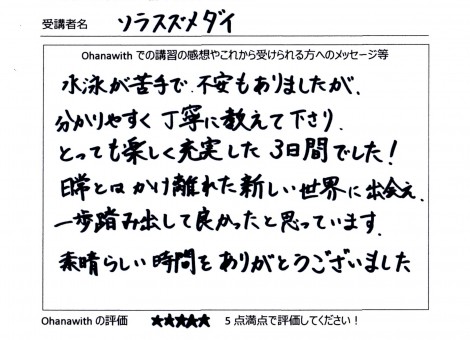 受講者名 ソラスズメダイ
Ohanawith での講習の感想やこれから受けられる方へのメッセージ等
水泳が苦手で、不安もありましたが、
分かりやすく丁寧に教えて下さり、
とっても楽しく充実した3日間でした！
日常とはかけ離れた新しい世界に出会え、
一歩踏み出して良かったと思っています。
素晴らしい時間をありがとうございました
Ohanawith の評価 ★★★★★ 5 点満点で評価してください！